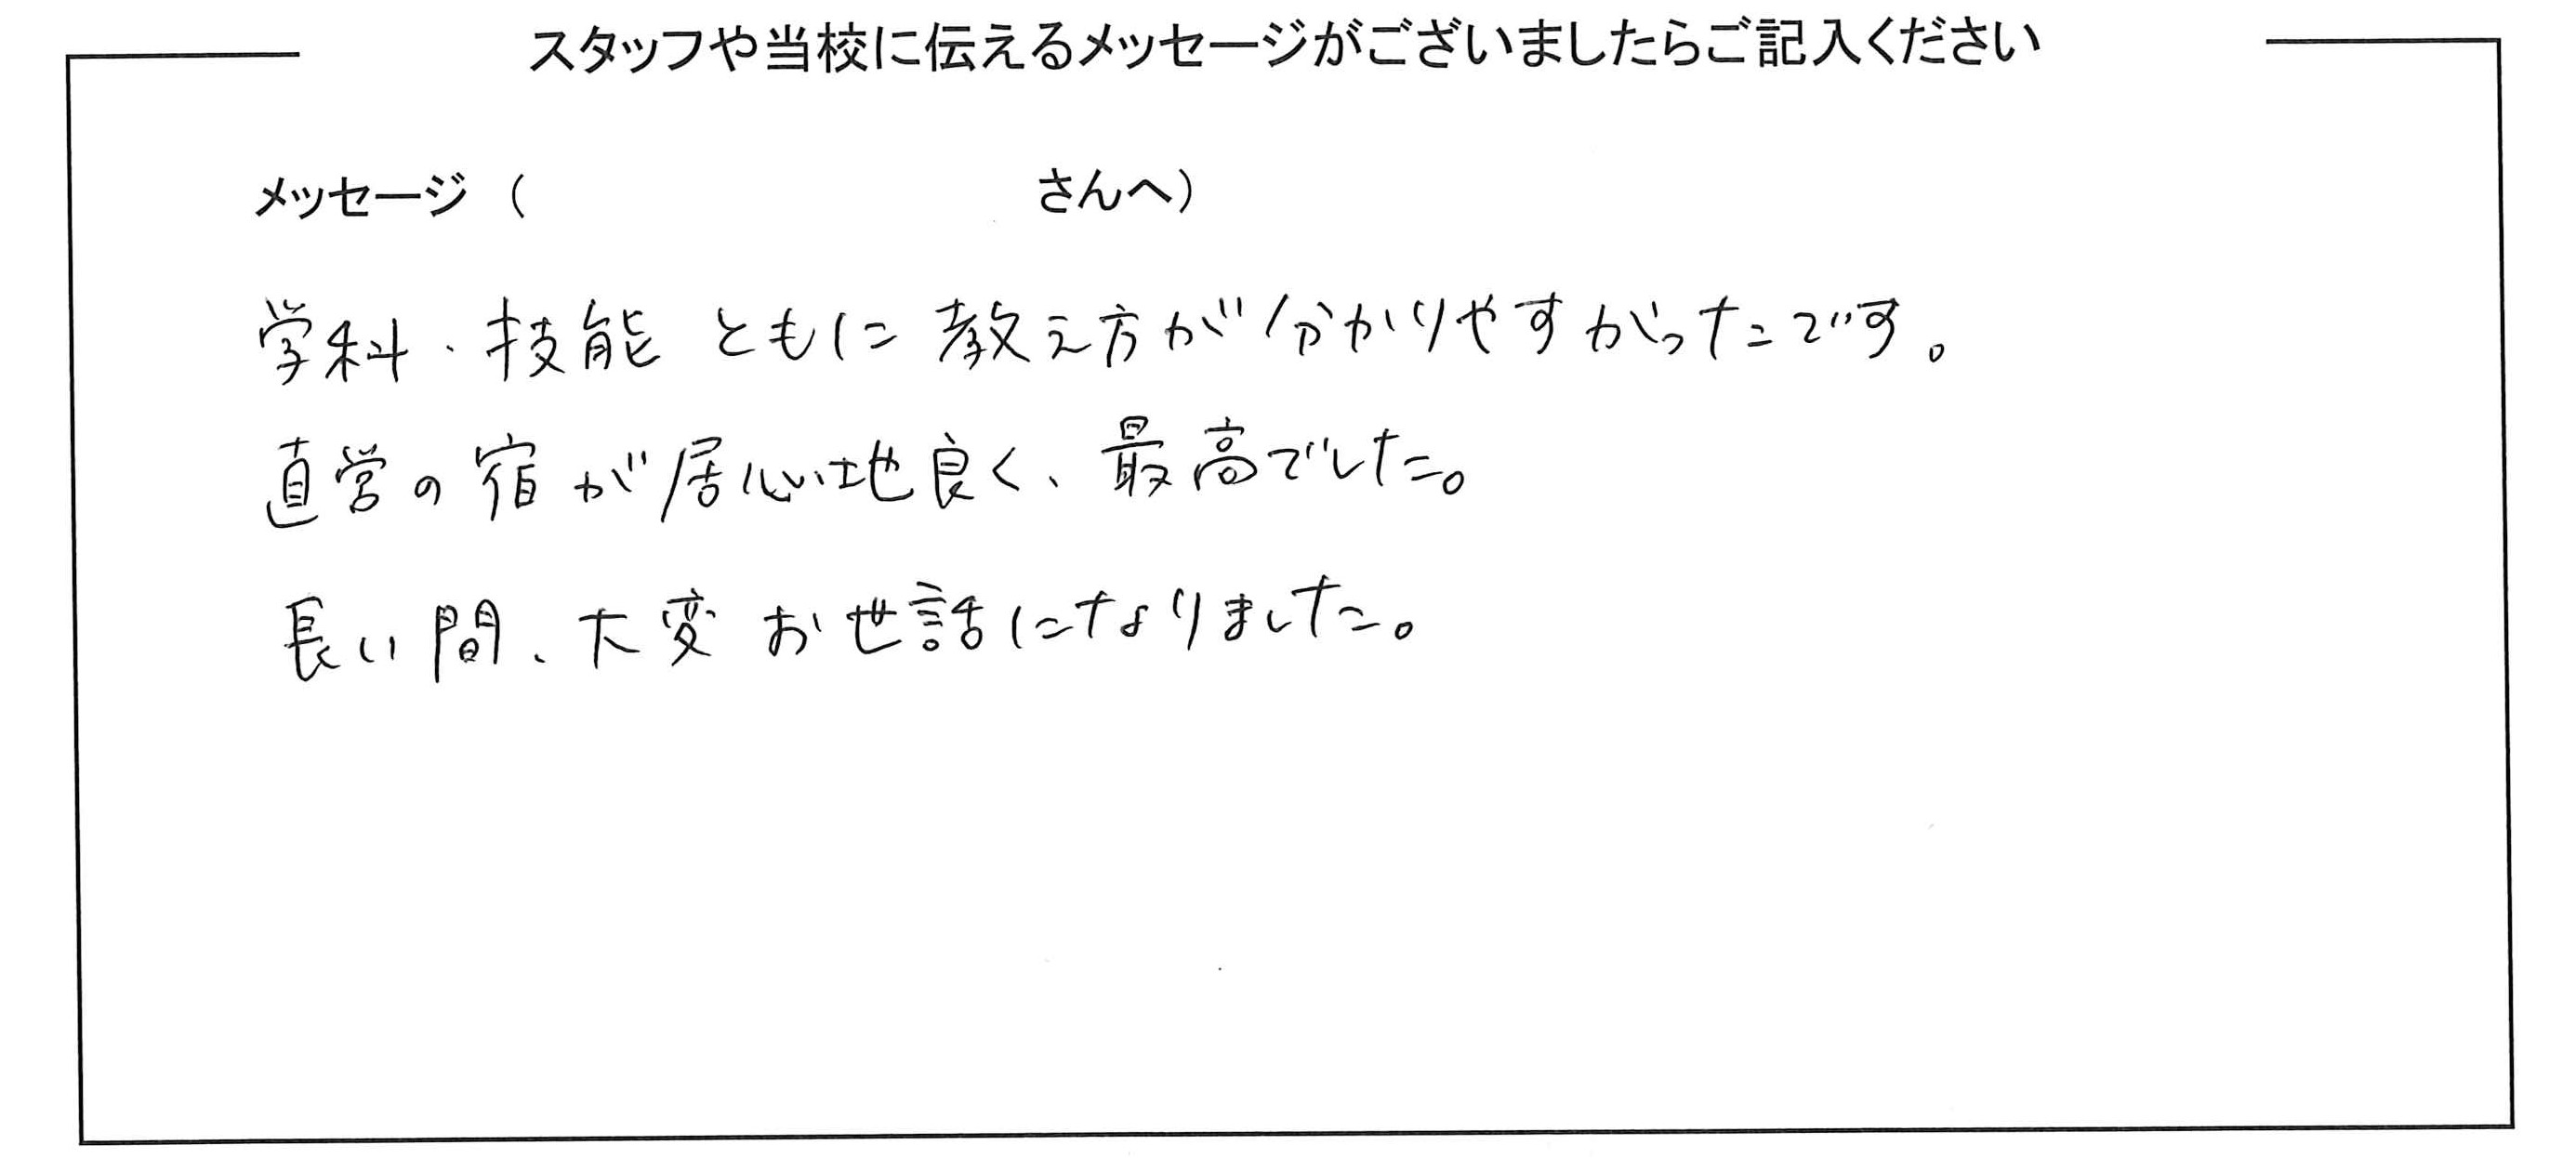 スタッフや当校に伝えるメッセージがございましたらご記入ください
メッセージ（　　　　　　　　　　さんへ）
学科・技能 ともに 教え方が分かりやすかったです。
直営の宿が居心地良く、最高でした。
長い間、大変お世話になりました。